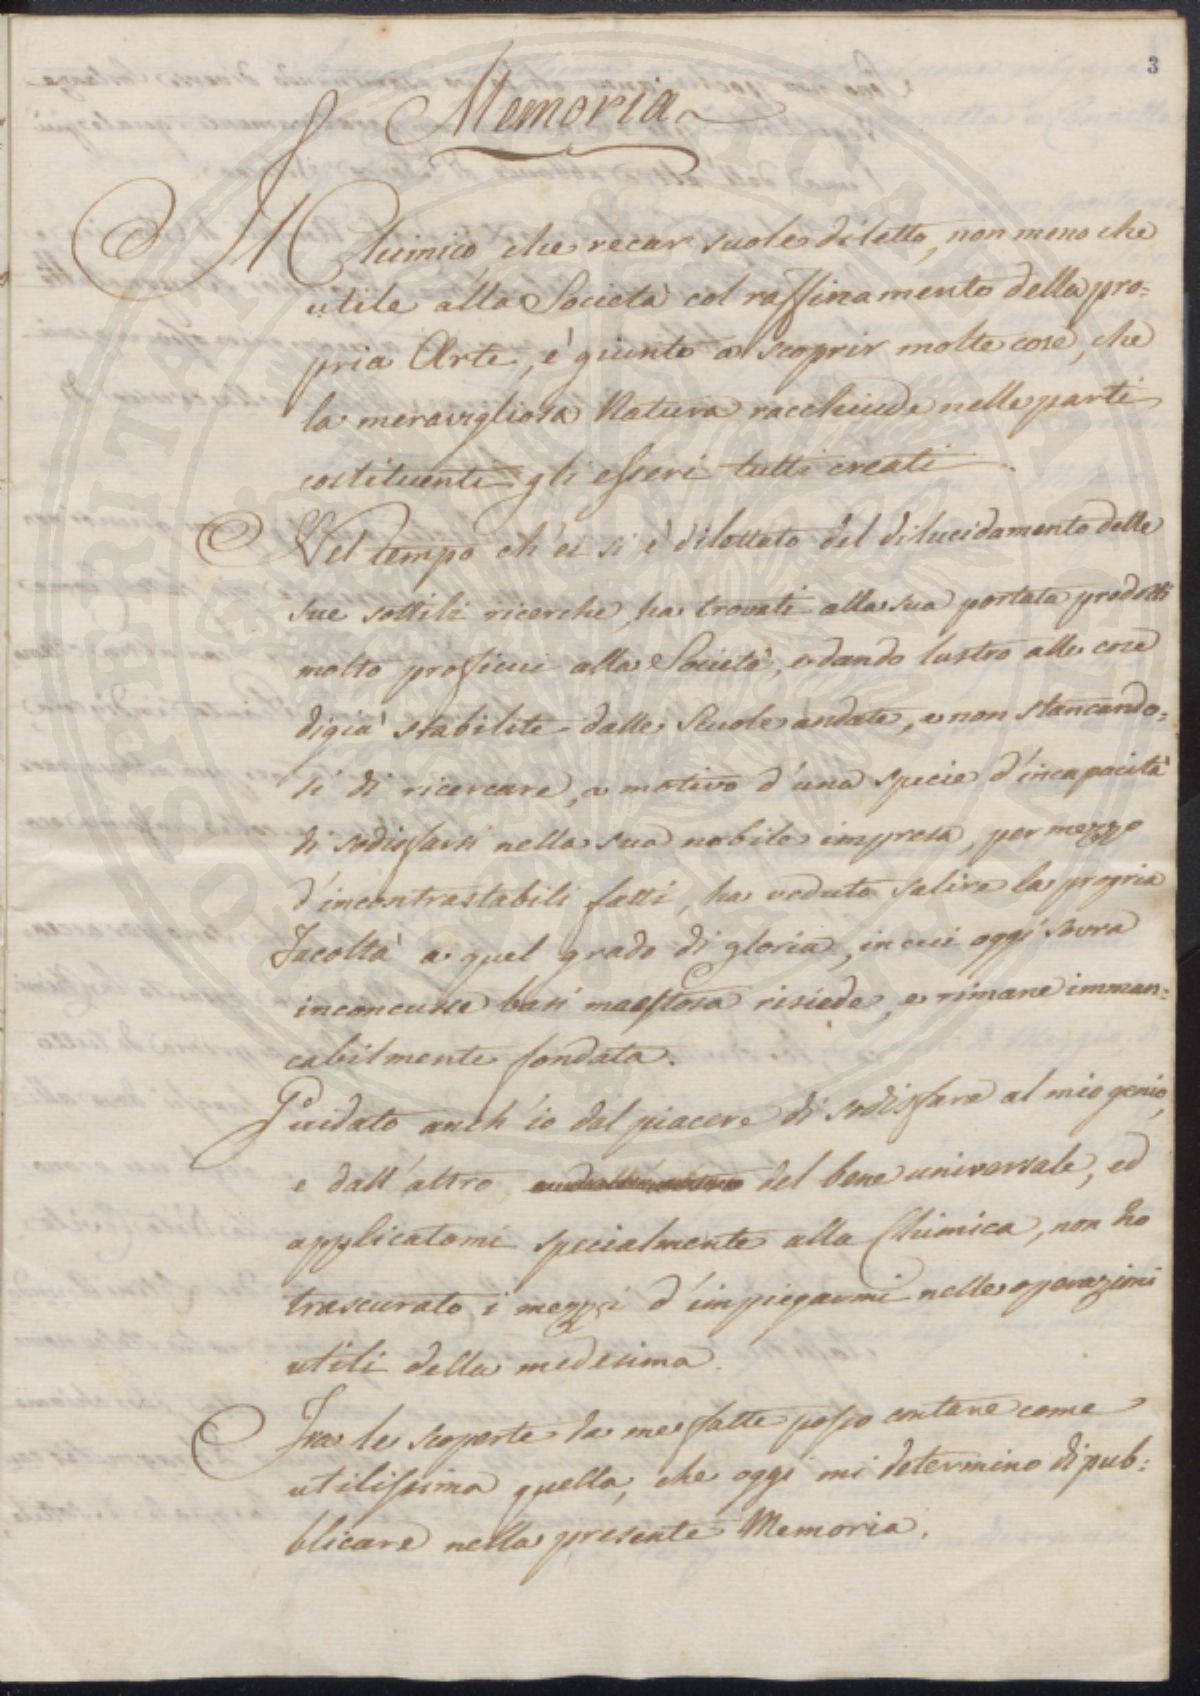 3
Memoria
Il Chimico che recar suole diletto, non meno che
utile alla Società col raffinamento della pro=
pria Arte, è giunto a scoprir molte cose, che
la meravigliosa Natura racchiude nelle parti
costituenti gli esseri tutti creati.
Nel tempo ch'ei si è dilettato del dilucidamento delle
sue sottili ricerche, ha trovati alla sua portata prodotti
molto proficui alla Società, e dando lustro alle cose
digià stabilite dalle Scuole andate, e non stancando=
si di ricercare, a motivo d'una specie d'incapacità
di sodisfarsi nella sua nobile impresa, per mezzo
d'incontrastabili fatti, ha veduto salire la propria
Facoltà a quel grado di gloria, in cui oggi sovra
inconcusse basi maestosa risiede, e rimane imman=
cabilmente fondata.
Guidato anch'io dal piacere di sodisfare al mio genio,
e dall'altro del bene universale, ed
applicatomi specialmente alla Chimica, non ho
trascurato i mezzi d'impiegarmi nelle operazioni
utili della medesima.
Fra le scoperte da me fatte posso contare come
utilissima quella, che oggi mi determino di pub=
blicare nella presente Memoria.